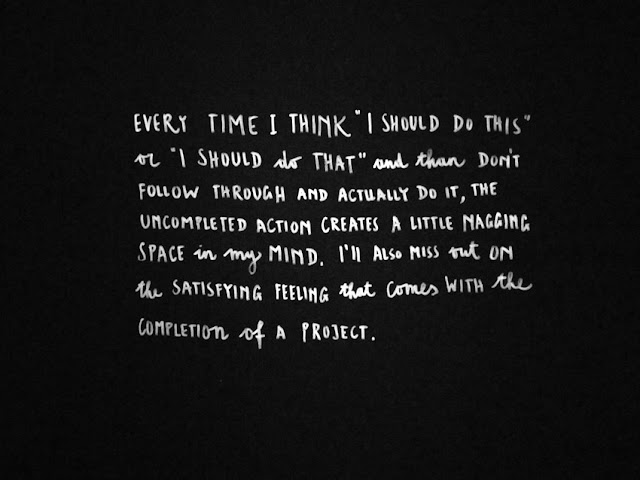 EVERY TIME I THINK "I SHOULD DO THIS"
or "I SHOULD do THAT" and than DON'T
FOLLOW THROUGH AND ACTUALLY DO IT, THE
UNCOMPLETED ACTION CREATES A LITTLE NAGGING
SPACE in my MIND. I'll ALSO MISS out ON
the SATISFYING FEELING that comes WITH the
COMPLETION of A PROJECT.